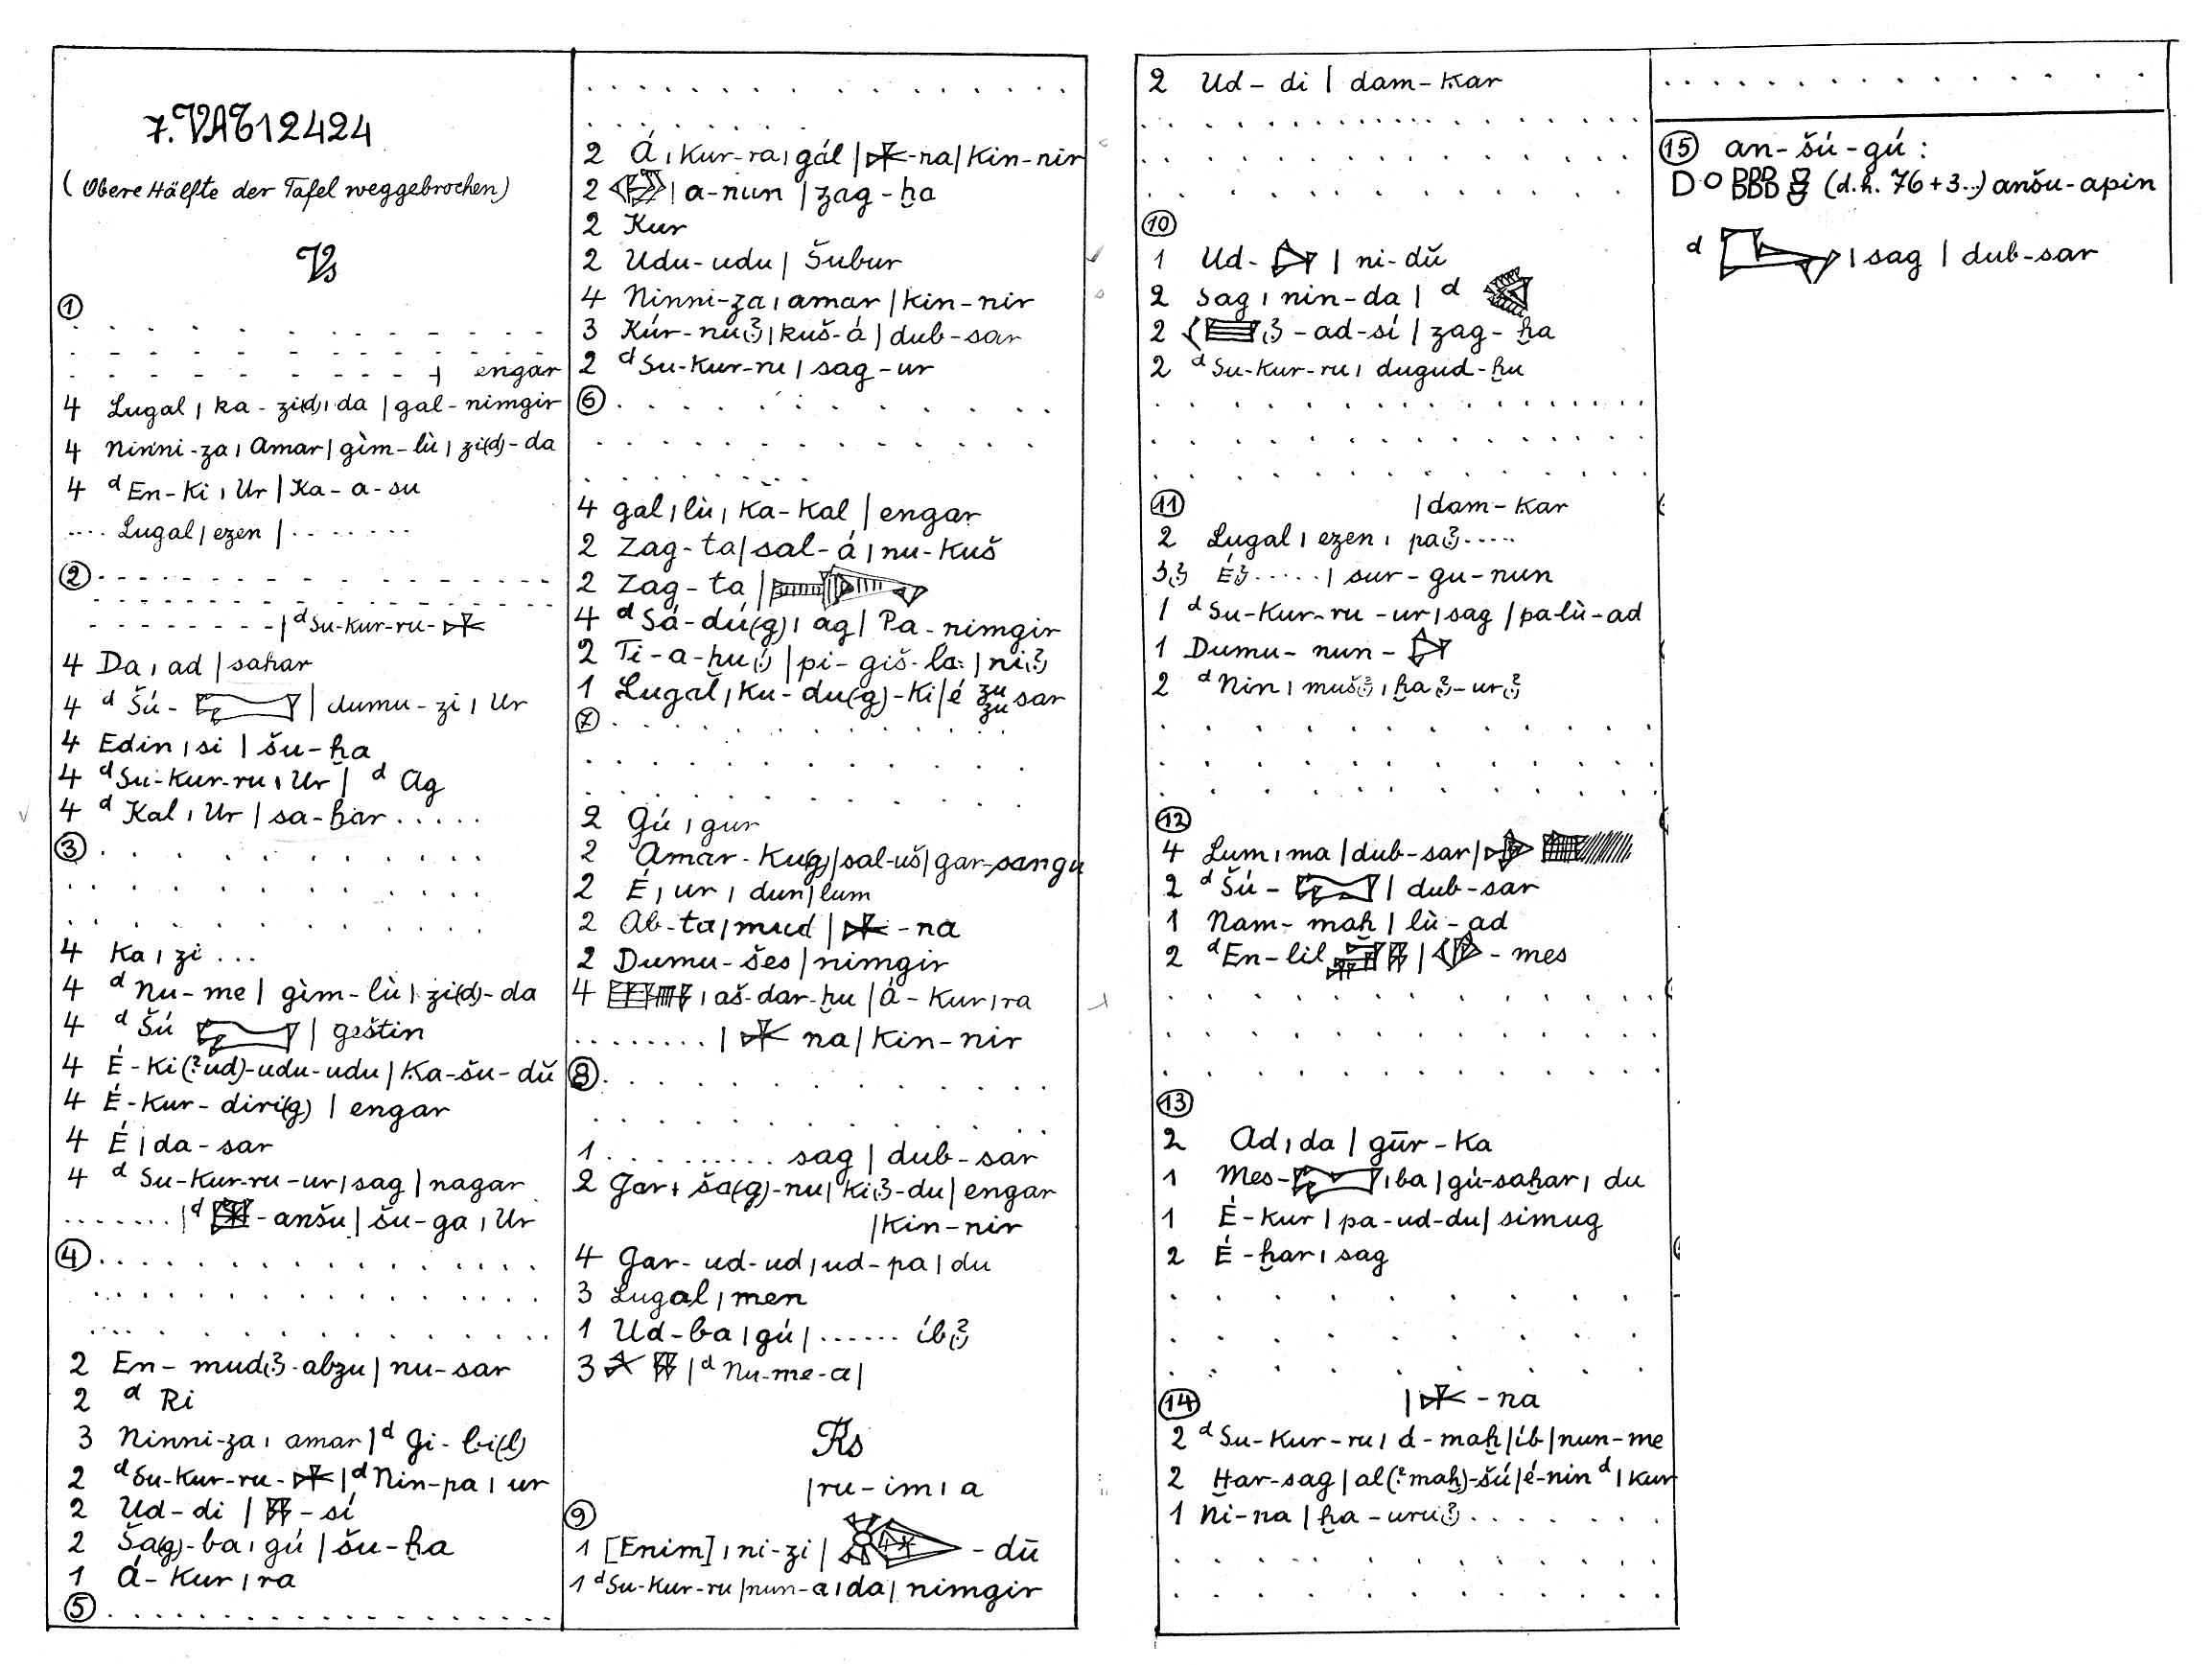 7. VAT 12424
(Obere Hälfte der Tafel weggebrochen)
Vs
①
. . . . . . . . . . . .
. . . . . . . . . . . .
. . . . . . . . . | engar
4 Lugal ı ka-zi(d) ı da | gal-nimgir
4 Ninni-za ı Amar | gìm-lù ı zi(d)-da
4 ᵈEn-ki ı Ur | Ka-a-su
.... Lugal | ezen | . . . . . . .
② . . . . . . . . . . . .
. . . . . . . . . . . .
. . . . . . . . | ᵈSu-kur-ru-
4 Da ı ad | sahar
4 ᵈŠú- | dumu-zi ı Ur
4 Edin ı si | šu-ḫa
4 ᵈSu-kur-ru ı Ur | ᵈAg
4 ᵈKal ı Ur | sa-ḫar . . . . .
③ . . . . . . . . . . .
. . . . . . . . . . .
. . . . . . . . . . .
4 Ka ı zi ...
4 ᵈNu-me | gìm-lù | zi(d)-da
4 ᵈŠú | geštin
4 É-ki(?ud)-udu-udu | Ka-šu-dŭ
4 É-kur-diri(g) | engar
4 É | da-sar
4 ᵈSu-kur-ru-ur ı sag | nagar
. . . . . . . | ᵈ -anšu | šu-ga ı Ur
④ . . . . . . . . . . . .
. . . . . . . . . . . .
. . . . . . . . . . . .
2 En-mud(?)-abzu | nu-sar
2 ᵈRi
3 Ninni-za ı amar | ᵈGi-bi(l)
2 ᵈSu-kur-ru- | ᵈNin-pa ı ur
2 Ud-di | -sí
2 Ša(g)-ba ı gú | šu-ḫa
1 Á-kur ı ra
⑤ . . . . . . . . . . . .
. . . . . . . . . . . .
. . . . . . .
2 Á ı kur-ra ı gál | -na | kin-nir
2 | a-nun | zag-ḫa
2 Kur
2 Udu-udu | Šubur
4 Ninni-za ı amar | kin-nir
3 Kúr-nu(?) | kuš-á | dub-sar
2 ᵈSu-kur-ru | sag-ur
⑥ . . . . . . . . . . .
. . . . . . . . . . .
. . . . . . .
4 gal ı lù ı ka-kal | engar
2 Zag-ta | sal-á ı nu-kuš
2 Zag-ta |
4 ᵈSá-dú(g) ı ag | Pa-nimgir
2 Ti-a-hu(?) | pi-giš-la: | ni(?)
1 Lugal ı Ku-du(g)-ki | é zu zu sar
⑦ . . . . . . . . . . .
. . . . . . . . . . .
. . . . . . . . . . .
2 Gú ı gur
2 Amar-ku(g) | sal-uš | gar-sangu
2 É ı ur ı dun | lum
2 Ab-ta | mud | -na
2 Dumu-šes | nimgir
4 ı aš-dar-ḫu | á-kur ı ra
. . . . . . . . | na | kin-nir
⑧ . . . . . . . . . . .
. . . . . . . . . . .
1 . . . . . . . . . . sag | dub-sar
2 Gar ı ša(g)-nu | ki(?)-du | engar
| kin-nir
4 Gar-ud-ud ı ud-pa | du
3 Lugal ı men
1 Ud-ba ı gú | ...... íb(?)
3 | ᵈNu-me-a |
Rs
| ru-im ı a
⑨
1 [Enim] ı ni-zi | -dū
1 ᵈSu-kur-ru | nun-a ı da | nimgir
2 Ud-di | dam-kar
. . . . . . . . . . . .
. . . . . . . . . . . .
. . . . . . . . . . . .
⑩
1 Ud- | ni-dŭ
2 Sag ı nin-da | ᵈ
2 (?)-ad-sí | zag-ḫa
2 ᵈSu-kur-ru ı dugud-ḫu
. . . . . . . . . . . .
. . . . . . . . . . . .
. . . . . . . . . . . .
⑪ | dam-kar
2 Lugal ı ezen ı pa(?).....
3(?) É(?)..... | sur-gu-nun
1 ᵈSu-kur-ru-ur ı sag | pa-lù-ad
1 Dumu-nun-
2 ᵈNin ı muš(?) ı ḫa(?)-ur(?)
. . . . . . . . . . .
. . . . . . . . . . .
. . . . . . . . . . .
⑫
4 Lum ı ma | dub-sar |
2 ᵈŠú- | dub-sar
1 Nam-maḫ | lù-ad
2 ᵈEn-lil | -mes
. . . . . . . . . . .
. . . . . . . . . . .
. . . . . . . . . . .
⑬
2 Ad ı da | gūr-ka
1 Mes- ı ba | gú-saḫar ı du
1 É-kur | pa-ud-du | simug
2 É-ḫar ı sag
. . . . . . . . .
. . . . . . . . .
. . . . . . . . .
⑭ | -na
2 ᵈSu-kur-ru ı d-maḫ | íb | nun-me
2 Ḫar-sag | al(?maḫ)-šú | é-nin ᵈ | kur
1 Ni-na | ḫa-uru(?) . . . . . . .
. . . . . . . . . . .
. . . . . . . . . . .
. . . . . . . . . . .
⑮ an-šú-gú :
(d.h. 76+3..) anšu-apin
ᵈ ı sag | dub-sar